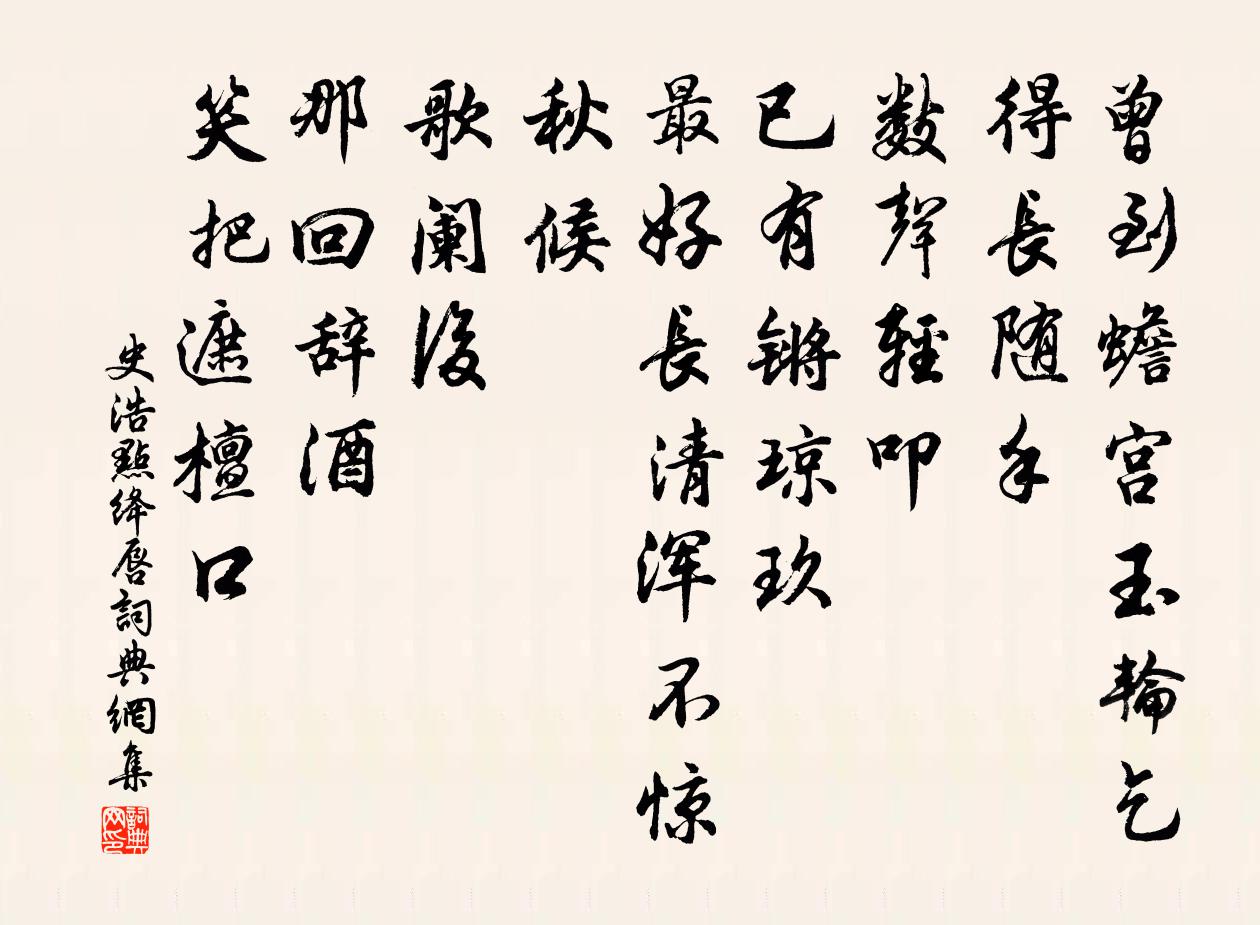 曾到蟾宫玉輪乞
得長随手
数聲輕叩
已有锵琼玖
最好長清浑不惊
秋候
歌阑後
那回辞酒
笑把遮檀口
史浩點绛唇詞典網集
詞典网印